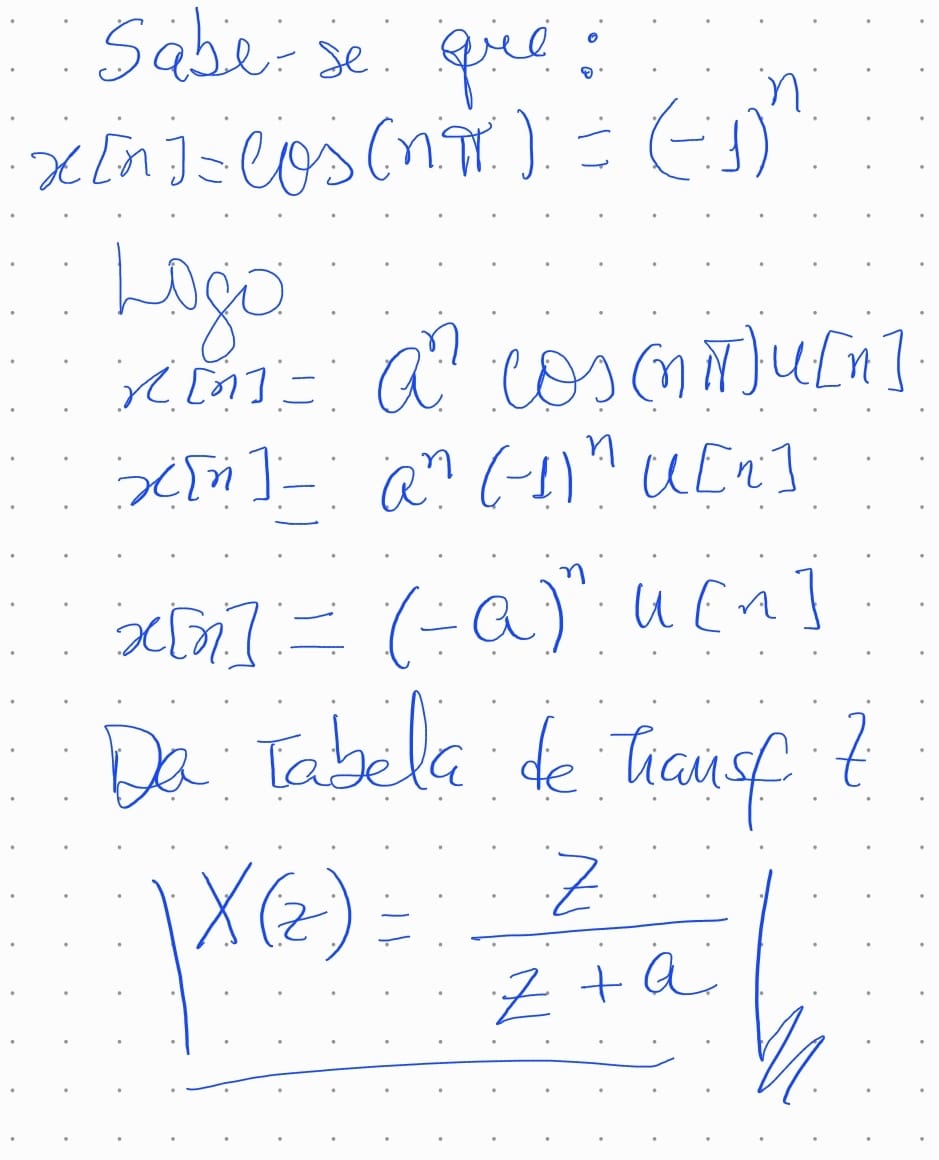 Sabe-se que:
x[n]=cos(nπ) = (-1)ⁿ
Logo
x[n] = aⁿ cos(nπ)u[n]
x[n] = aⁿ (-1)ⁿ u[n]
x[n] = (-a)ⁿ u[n]
Da Tabela de Transf. Z
X(z) = z / (z + a)